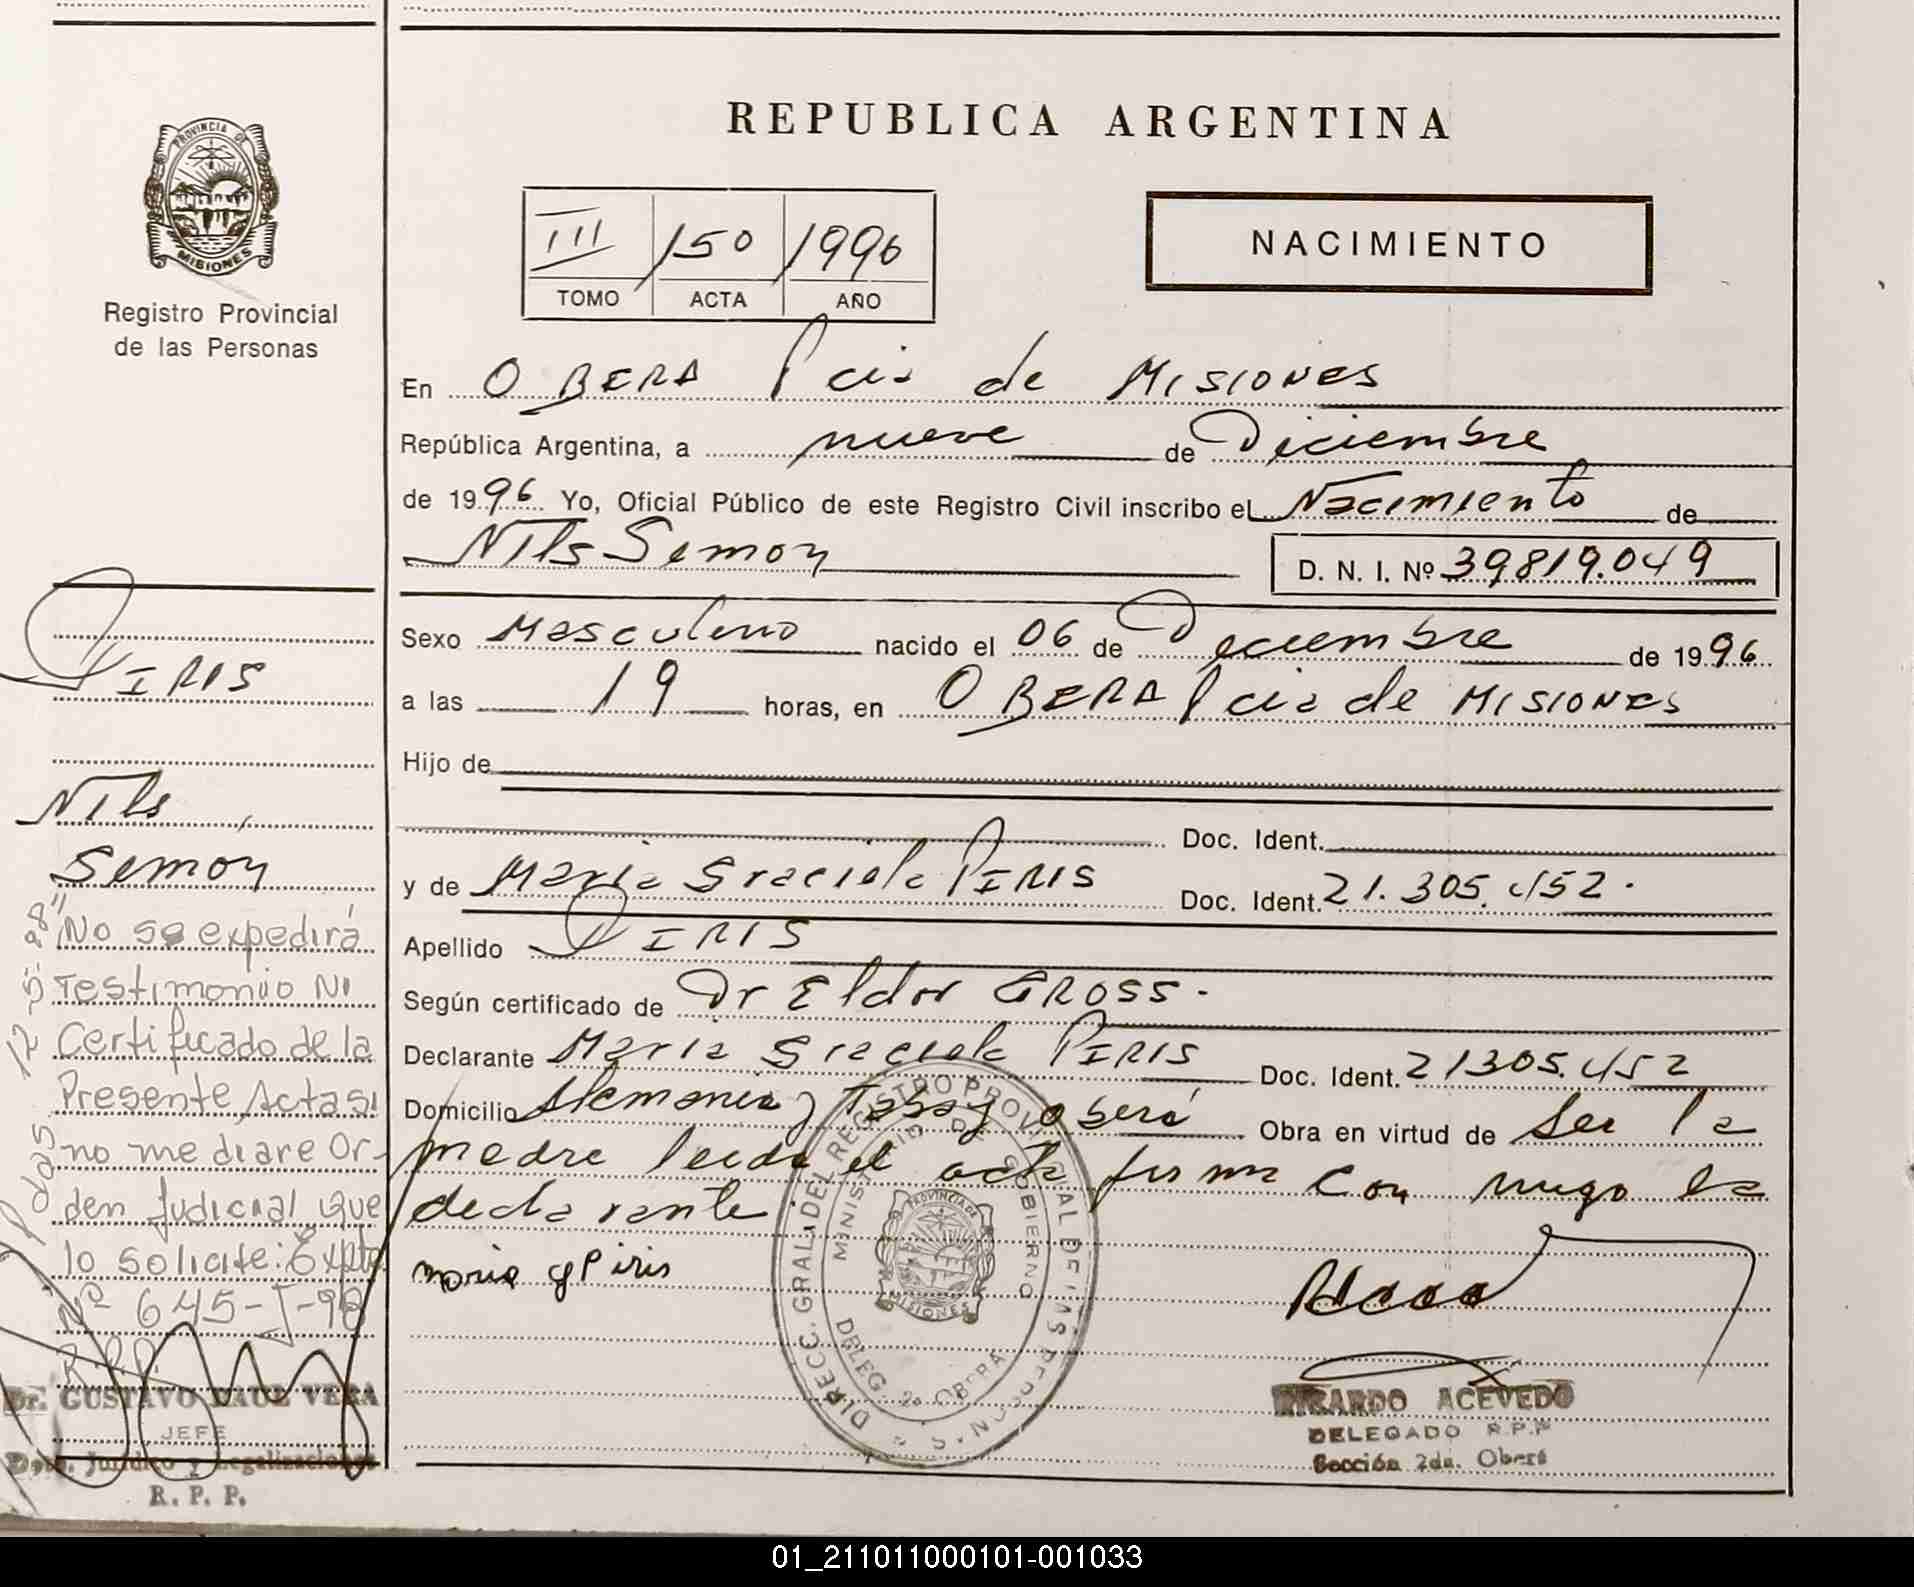 REPUBLICA ARGENTINA
PROVINCIA DE
MISIONES
Registro Provincial
de las Personas
III 150 1996
TOMO ACTA AÑO
NACIMIENTO
En OBERA Pcia de MISIONES
República Argentina, a nueve de Diciembre
de 1996 Yo, Oficial Público de este Registro Civil inscribo el Nacimiento de
Nils Simon
D. N. I. Nº 39819.049
Sexo Masculino nacido el 06 de Diciembre de 1996
a las 19 horas, en OBERA Pcia de MISIONES
Hijo de
Doc. Ident.
y de Maria Graciela PIRIS Doc. Ident. 21.305.452.
Apellido PIRIS
Según certificado de Dr Eldor GROSS.
Declarante Maria Graciela PIRIS Doc. Ident. 21305.452
Domicilio Alemania y Tabay Oberá Obra en virtud de ser la
madre leida el acta firma con migo la
declarante
maria g Piris
DIRECC. GRAL. DEL REGISTRO PROVINCIAL DE LAS PERSONAS
MINISTERIO DE GOBIERNO
PROVINCIA DE
MISIONES
DELEG. 2ª OBERA
RICARDO ACEVEDO
DELEGADO R.P.P.
Sección 2da. Oberá
PIRIS
Nils,
Simon
No se expedirá
Testimonio Ni
Certificado de la
Presente Acta si
no mediare Or-
den Judicial que
lo solicite: Expte
Nº 645-J-98
R.P.P.
Dr. GUSTAVO RAUL VERA
JEFE
Dpto. Jurídico y Legalizaciones
R. P. P.
01_211011000101-001033